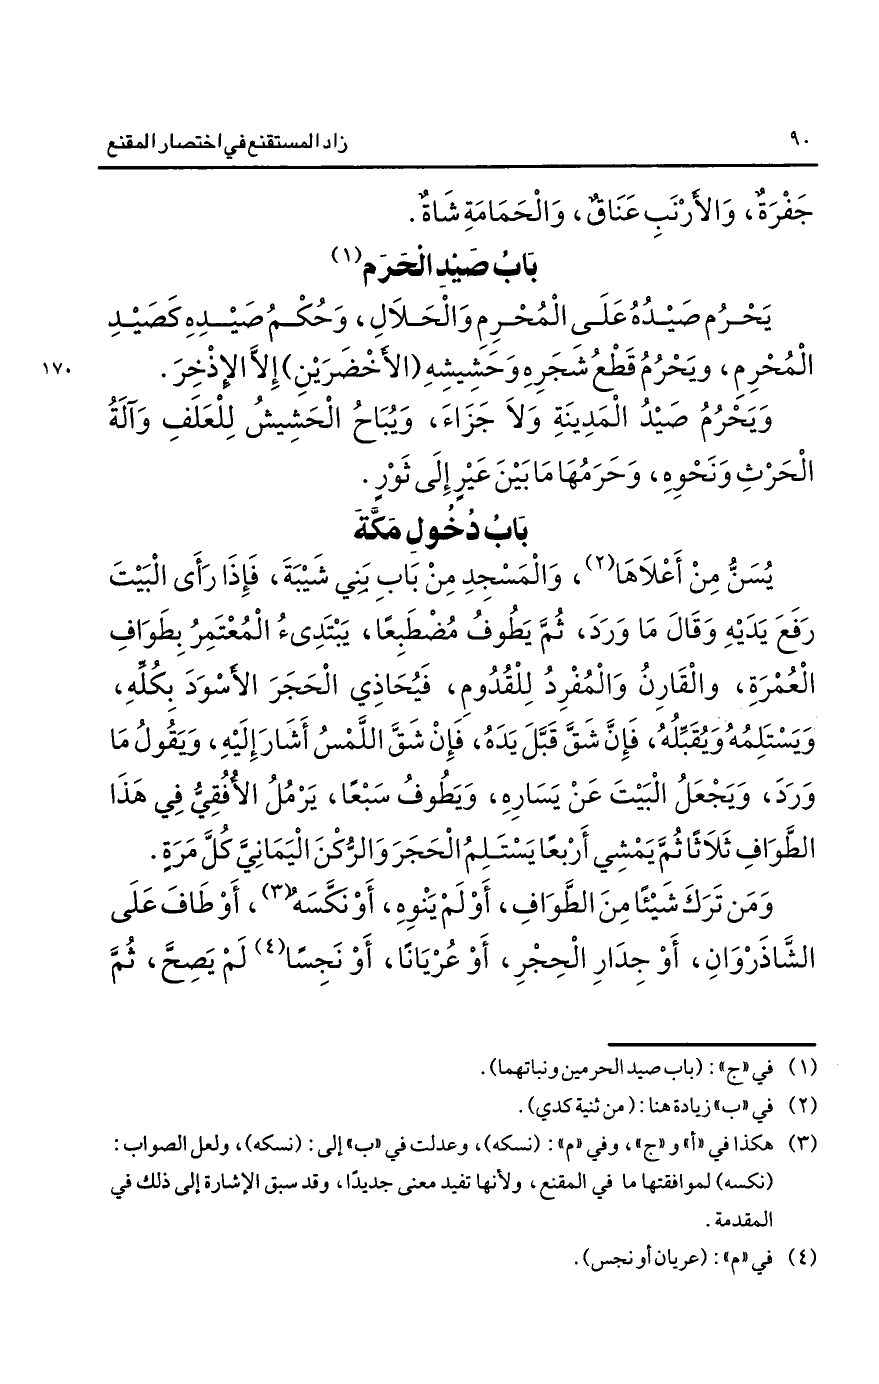 ٩٠
زاد المستقنع في اختصار المقنع
جَفْرَةٌ، وَالأَرْنَبِ عَنَاقٌ، وَالْحَمَامَةِ شَاةٌ.
بَابُ صَيْدِ الْحَرَمِ(١)
يَحْرُم صَيْدُهُ عَلَى الْمُحْرِمِ وَالْحَلاَلِ، وَحُكْمُ صَيْدِهِ كَصَيْدِ
الْمُحْرِمِ، ويَحْرُمُ قَطْعُ شَجَرِهِ وَحَشِيشِهِ (الأَخْضَرَيْنِ) إِلاَّ الإِذْخِرَ.
١٧٠
وَيَحْرُمُ صَيْدُ الْمَدِينَةِ وَلاَ جَزَاءَ، وَيُبَاحُ الْحَشِيشُ لِلْعَلَفِ وَآلَةُ
الْحَرْثِ وَنَحْوِهِ، وَحَرَمُهَا مَا بَيْنَ عَيْرٍ إِلَى ثَوْرٍ.
بَابُ دُخُولِ مَكَّةَ
يُسَنُّ مِنْ أَعْلاَهَا(٢)، وَالْمَسْجِدِ مِنْ بَابِ بَنِي شَيْبَةَ، فَإِذَا رَأَى الْبَيْتَ
رَفَعَ يَدَيْهِ وَقَالَ مَا وَرَدَ، ثُمَّ يَطُوفُ مُضْطَبِعًا، يَبْتَدِىءُ الْمُعْتَمِرُ بِطَوَافِ
الْعُمْرَةِ، والْقَارِنُ وَالْمُفْرِدُ لِلْقُدُومِ، فَيُحَاذِي الْحَجَرَ الأَسْوَدَ بِكُلِّهِ،
وَيَسْتَلِمُهُ وَيُقَبِّلُهُ، فَإِنَّ شَقَّ قَبَّلَ يَدَهُ، فَإِنْ شَقَّ اللَّمْسُ أَشَارَ إِلَيْهِ، وَيَقُولُ مَا
وَرَدَ، وَيَجْعَلُ الْبَيْتَ عَنْ يَسَارِهِ، وَيَطُوفُ سَبْعًا، يَرْمُلُ الأُفُقِيُّ فِي هَذَا
الطَّوَافِ ثَلاَثًا ثُمَّ يَمْشِي أَرْبعًا يَسْتَلِمُ الْحَجَرَ وَالرُّكْنَ الْيَمَانِيَّ كُلَّ مَرَةٍ.
وَمَن تَرَكَ شَيْئًا مِنَ الطَّوَافِ، أَوْ لَمْ يَنْوِهِ، أَوْ نَكَّسَهُ(٣)، أَوْ طَافَ عَلَى
الشَّاذَرْوَانِ، أَوْ جِدَارِ الْحِجْرِ، أَوْ عُرْيَانًا، أَوْ نَجِسًا(٤) لَمْ يَصِحَّ، ثُمَّ
(١) في «ج»: (باب صيد الحرمين ونباتهما).
(٢) في «ب» زيادة هنا: (من ثنية كدي).
(٣) هكذا في «أ» و «ج»، وفي «م»: (نسكه)، وعدلت في «ب» إلى: (نسكه)، ولعل الصواب:
(نكسه) لموافقتها ما في المقنع، ولأنها تفيد معنى جديدًا، وقد سبق الإشارة إلى ذلك في
المقدمة.
(٤) في «م»: (عريان أو نجس).